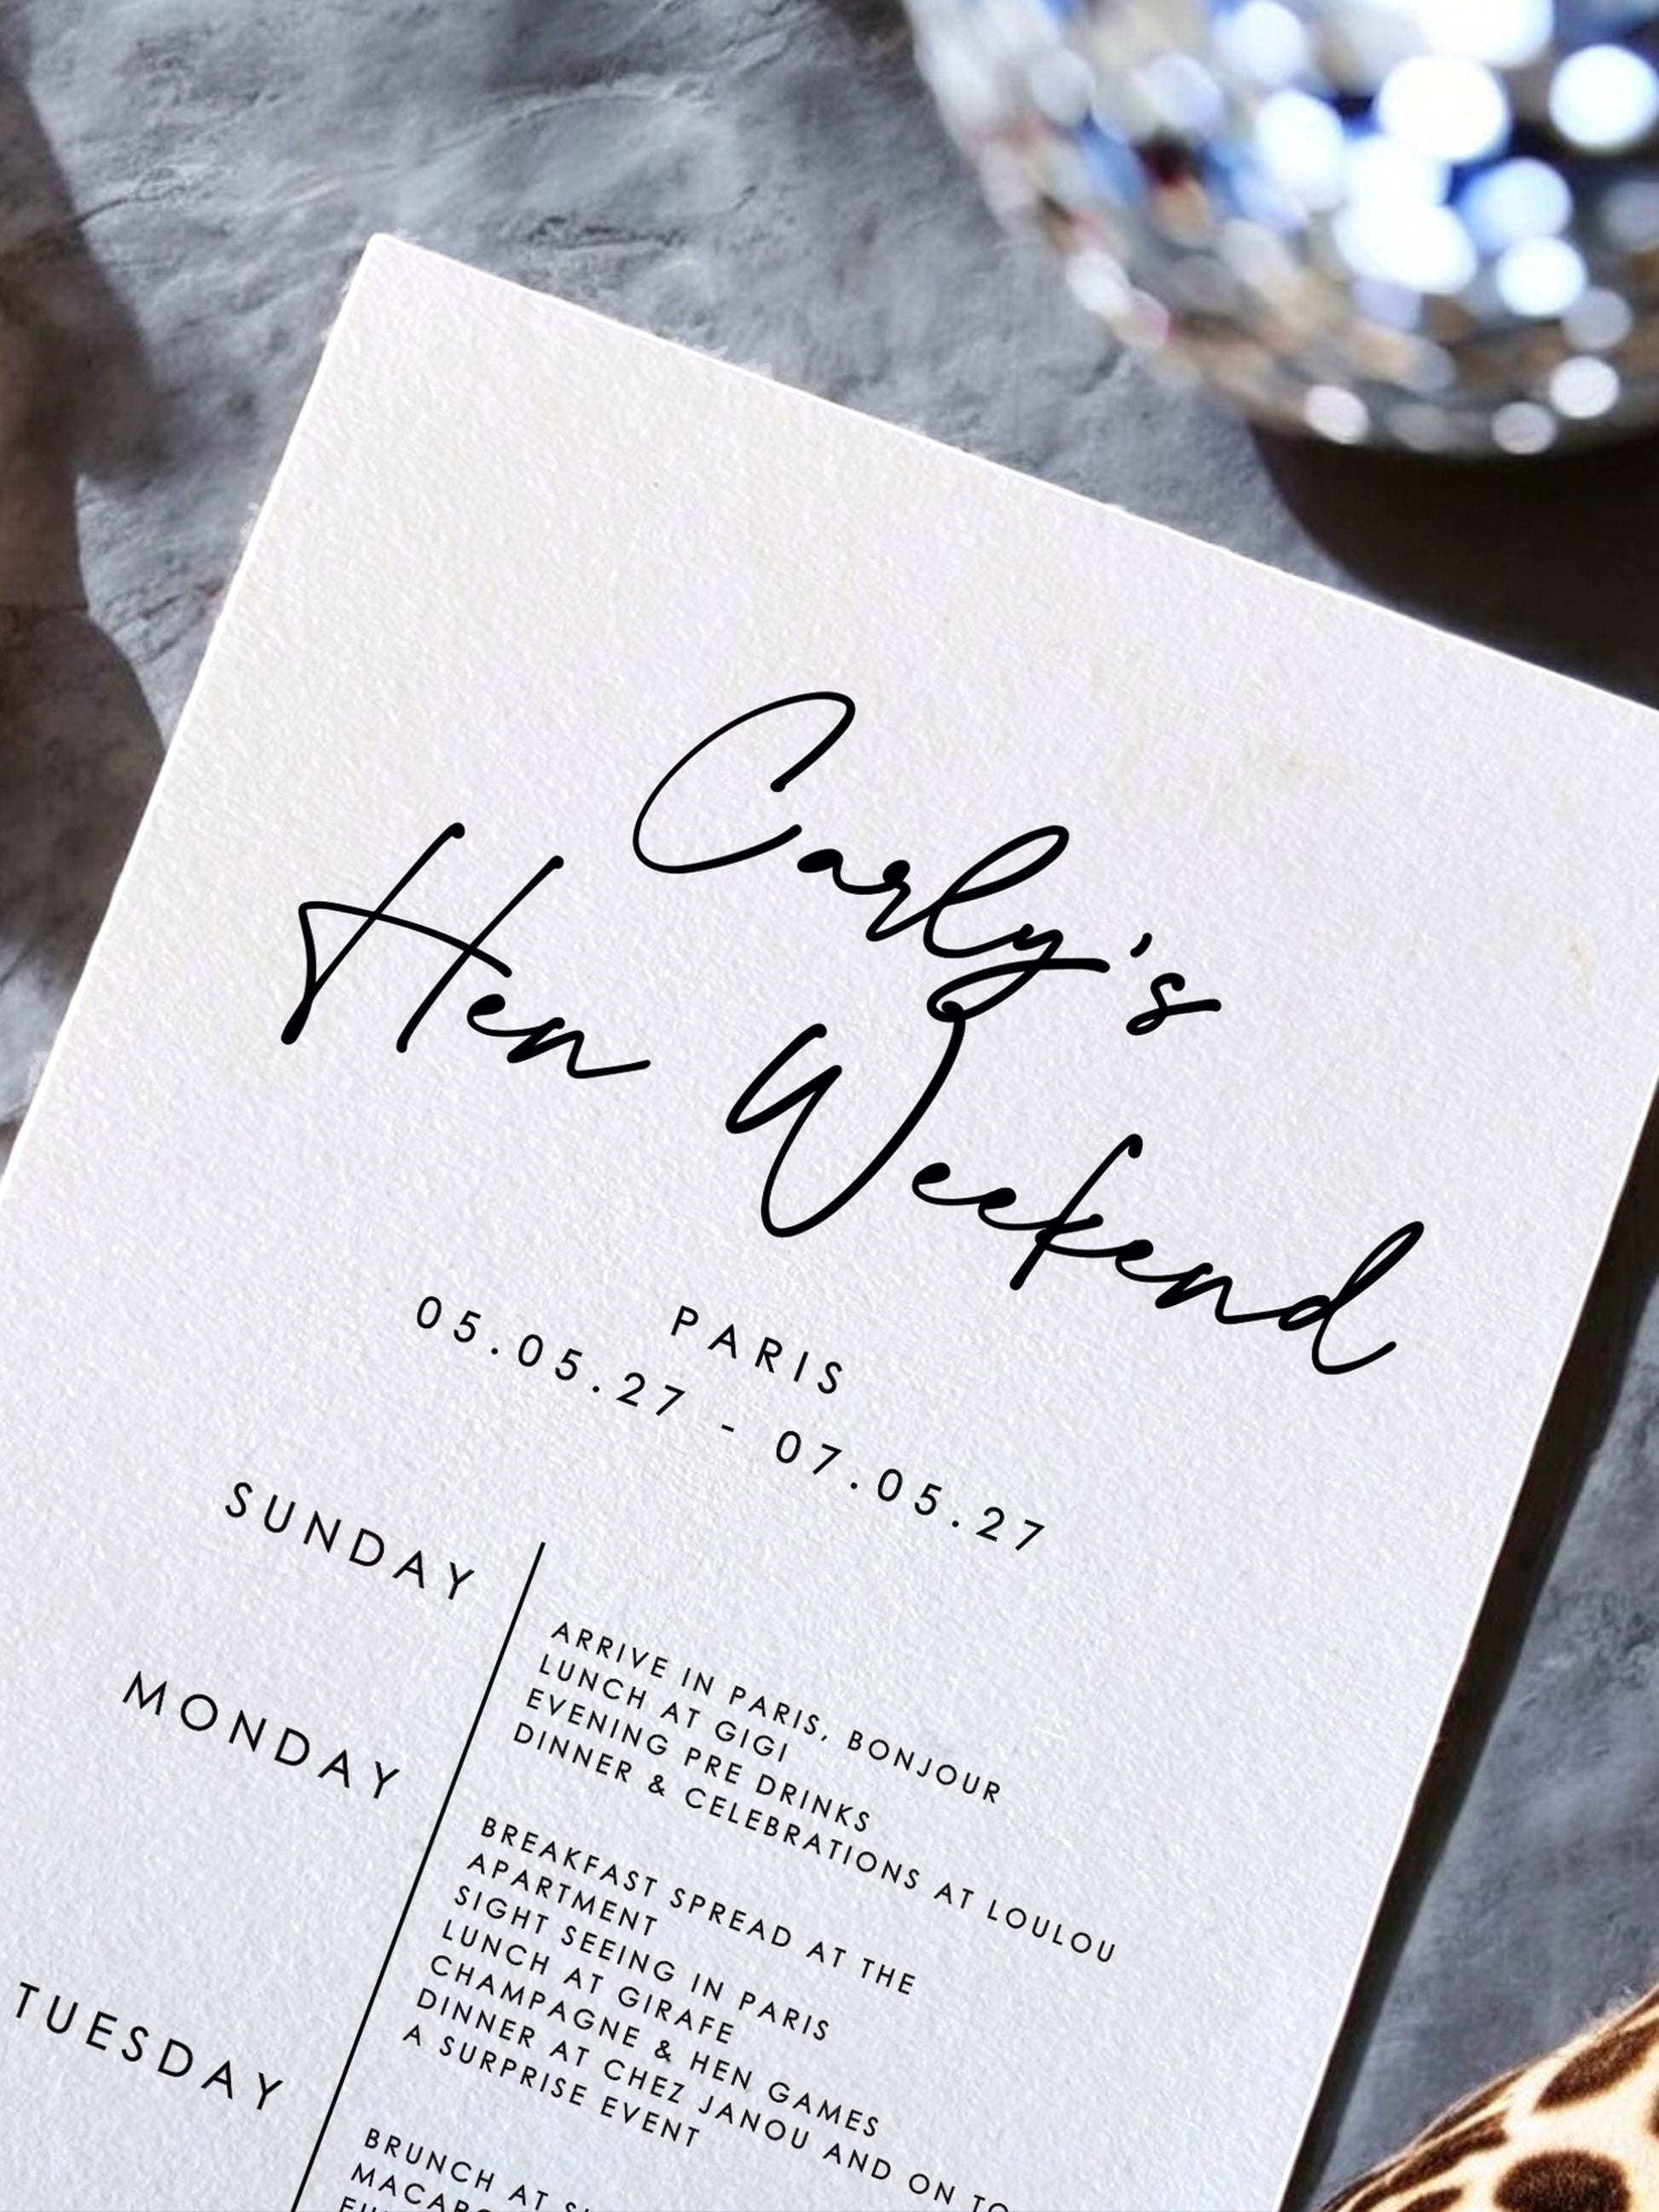 Carly's
Hen Weekend
PARIS
05.05.27 - 07.05.27
SUNDAY
ARRIVE IN PARIS, BONJOUR
LUNCH AT GIGI
EVENING PRE DRINKS
DINNER & CELEBRATIONS AT LOULOU
MONDAY
BREAKFAST SPREAD AT THE
APARTMENT
SIGHT SEEING IN PARIS
LUNCH AT GIRAFE
CHAMPAGNE & HEN GAMES
DINNER AT CHEZ JANOU AND ON TO
A SURPRISE EVENT
TUESDAY
BRUNCH AT